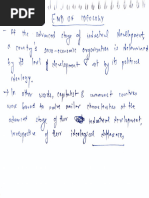 END OF IDEOLOGY
→ At the advanced stage of industrial development,
a country's socio-economic organisation is determined
by its level of development & not by its political
ideology.
→ In other words, capitalist & communist countries
were bound to evolve similar characteristics at the
advanced stage of their industrial development,
irrespective of their ideological differences.